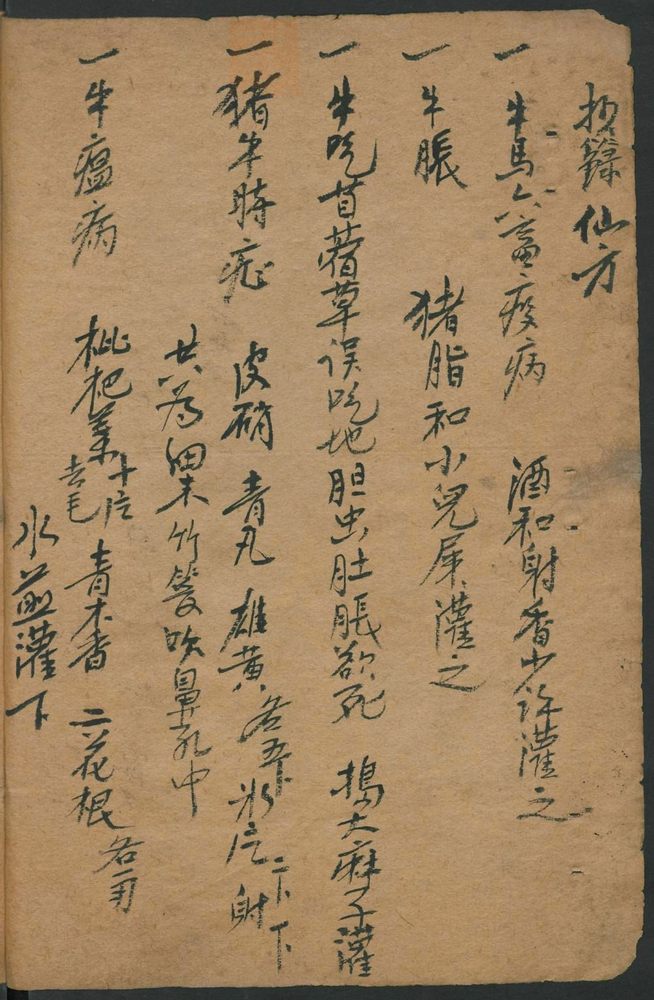 抄錄仙方
一牛馬六畜疫病 酒和射香少許灌之
一牛脹 猪脂和小兒屎灌之
一牛吃苜蓿草误吃地胆虫肚脹欲死 搗大麻子灌
一猪牛時症 皮硝 青丸 雄黄各五卜 氷片二卜 射
共为細末竹筒吹鼻孔中
一牛瘟病 枇杷葉十片去毛 青木香 二花根各一両
水煎灌下